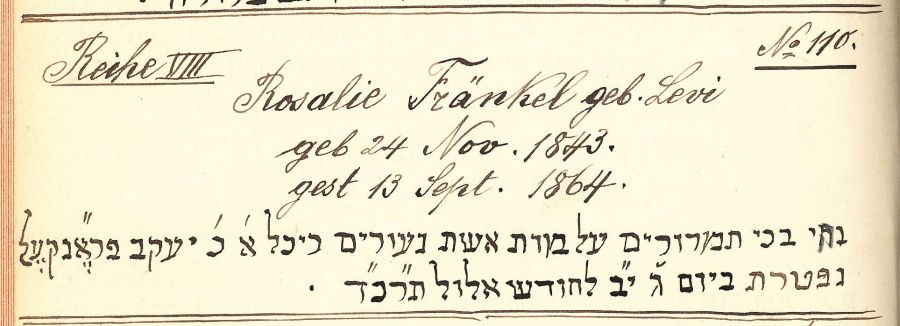 Reihe VIII
No 110.
Rosalie Fränkel geb. Levi
geb 24 Nov. 1843.
gest 13 Sept. 1864.
נהי בכי תמרורים על מות אשת נעורים ריכל א' כ' יעקב פראֶנקעֶל
נפטרת ביום ג' י"ב לחודש אלול תרכ"ד .